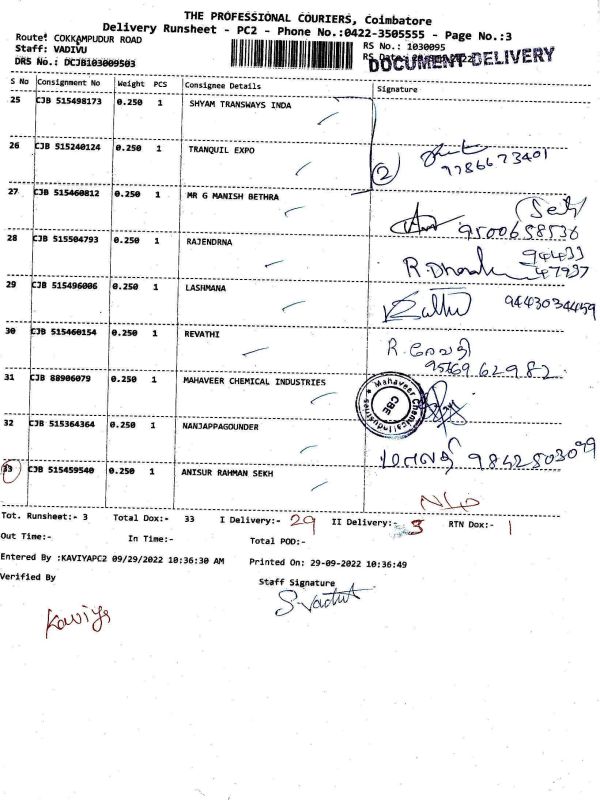 THE PROFESSIONAL COURIERS, Coimbatore
Delivery Runsheet - PC2 - Phone No.:0422-3505555 - Page No.:3
Route: COKKAMPUDUR ROAD
RS No.: 1030095
Staff: VADIVU
DOCUMENT DELIVERY
DRS No.: DCJB103009503
S No Consignment No Weight PCS Consignee Details Signature
25 CJB 515498173 0.250 1 SHYAM TRANSWAYS INDA
26 CJB 515240124 0.250 1 TRANQUIL EXPO
2 9786673401
27 CJB 515460812 0.250 1 MR G MANISH BETHRA
9500658536
28 CJB 515504793 0.250 1 RAJENDRNA
94433
47937
29 CJB 515496006 0.250 1 LASHMANA
9443034459
30 CJB 515460154 0.250 1 REVATHI
R. ரேவதி
31 CJB 88906079 0.250 1 MAHAVEER CHEMICAL INDUSTRIES
Mahaveer Chemical Industries
CBE
32 CJB 515364364 0.250 1 NANJAPPAGOUNDER
33 CJB 515459540 0.250 1 ANISUR RAHMAN SEKH
Tot. Runsheet:- 3 Total Dox:- 33 I Delivery:- 29 II Delivery:- 3 RTN Dox:- 1
Out Time:- In Time:- Total POD:-
Entered By :KAVIYAPC2 09/29/2022 10:36:30 AM Printed On: 29-09-2022 10:36:49
Verified By Staff Signature
Kaviya S.Vadivu